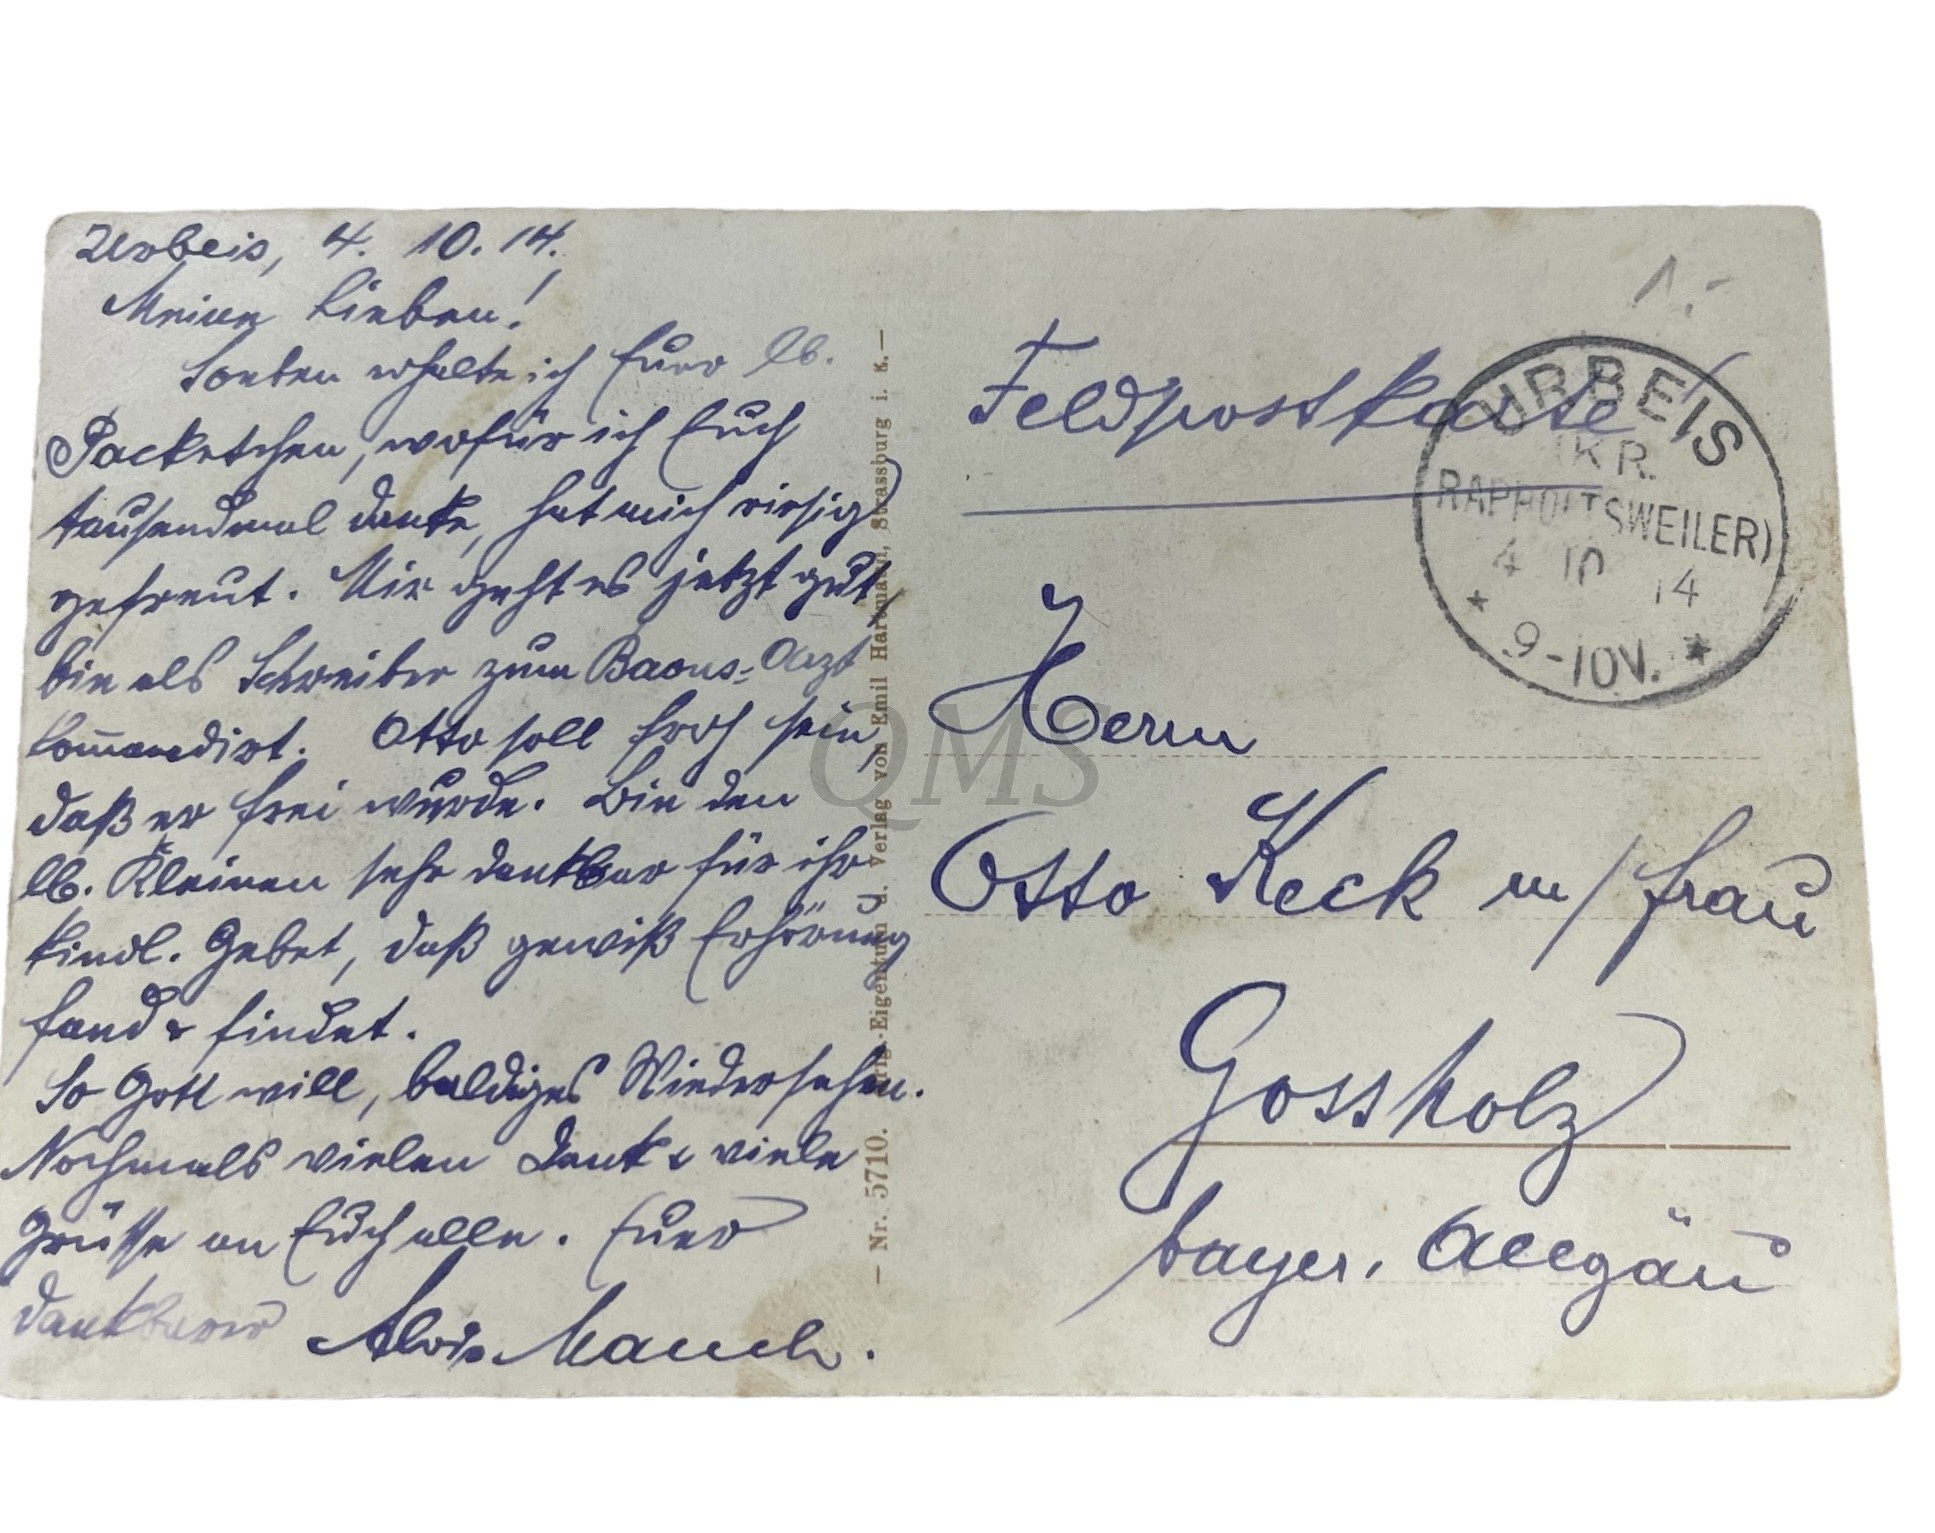 Urbeis, 4. 10. 14.
Meine Lieben!
Soeben erhalte ich Euer lb.
Packetchen, wofür ich Euch
tausendmal danke, hat mich riesig
gefreut. Mir geht es jetzt gut,
bin als Schreiber zum Baons-Arzt
kommandirt. Otto soll froh sein,
daß er frei wurde. Bin den
lb. Kleinen sehr dankbar für ihr
kindl. Gebet, daß gewiß Erhörung
fand & findet.
So Gott will, baldiges Wiedersehen.
Nochmals vielen Dank & viele
Grüsse an Euch alle. Euer
dankbarer Alois Mauch.
— Nr. 5710. Orig.-Eigentum u. Verlag von Emil Hartmann, Strassburg i. E. —
Feldpostkarte!
URBEIS
(KR.
RAPPOLTSWEILER)
4 10 14
* 9-10V. *
Herrn
Otto Keck m/Frau
Gossholz
bayer. Allgäu
QMS